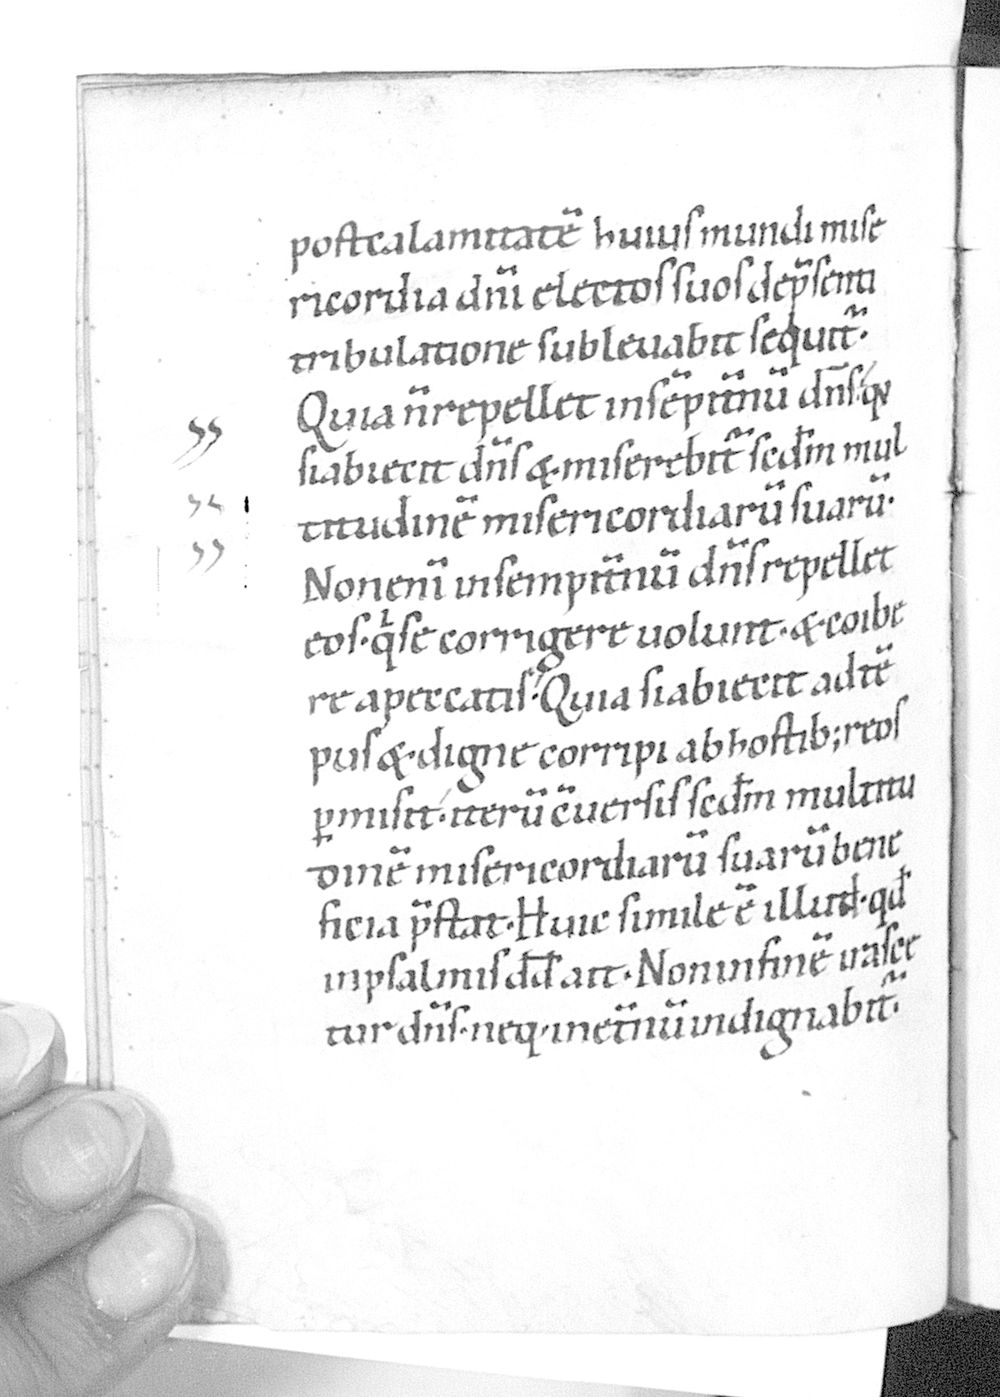 post calamitatē huius mundi mise
ricordia dn̄i electos suos dep̄senti
tribulatione subleuabit sequit̄.
Quia n̄ repellet in sēpit̄nū dn̄s. q̇
si abiecit dn̄s &. miserebit̄ scd̄m mul
titudinē misericordiarū suarū.
Non enī in sempit̄nū dn̄s repellet
eos. q̇ se corrigere uolunt. & coibe
re a peccatis. Quia si abiecit ad tē
pus &. digne corripi ab hostib; reos
ꝑmisit. iterū c̄uersis scd̄m multitu
dinē misericordiarū suarū bene
ficia p̄stat. Huic simile ē illud. qd̄
in psalmis dd̄ ait. Non in finē irasce
tur dn̄s. neq. in et̄nū indignabit̄.